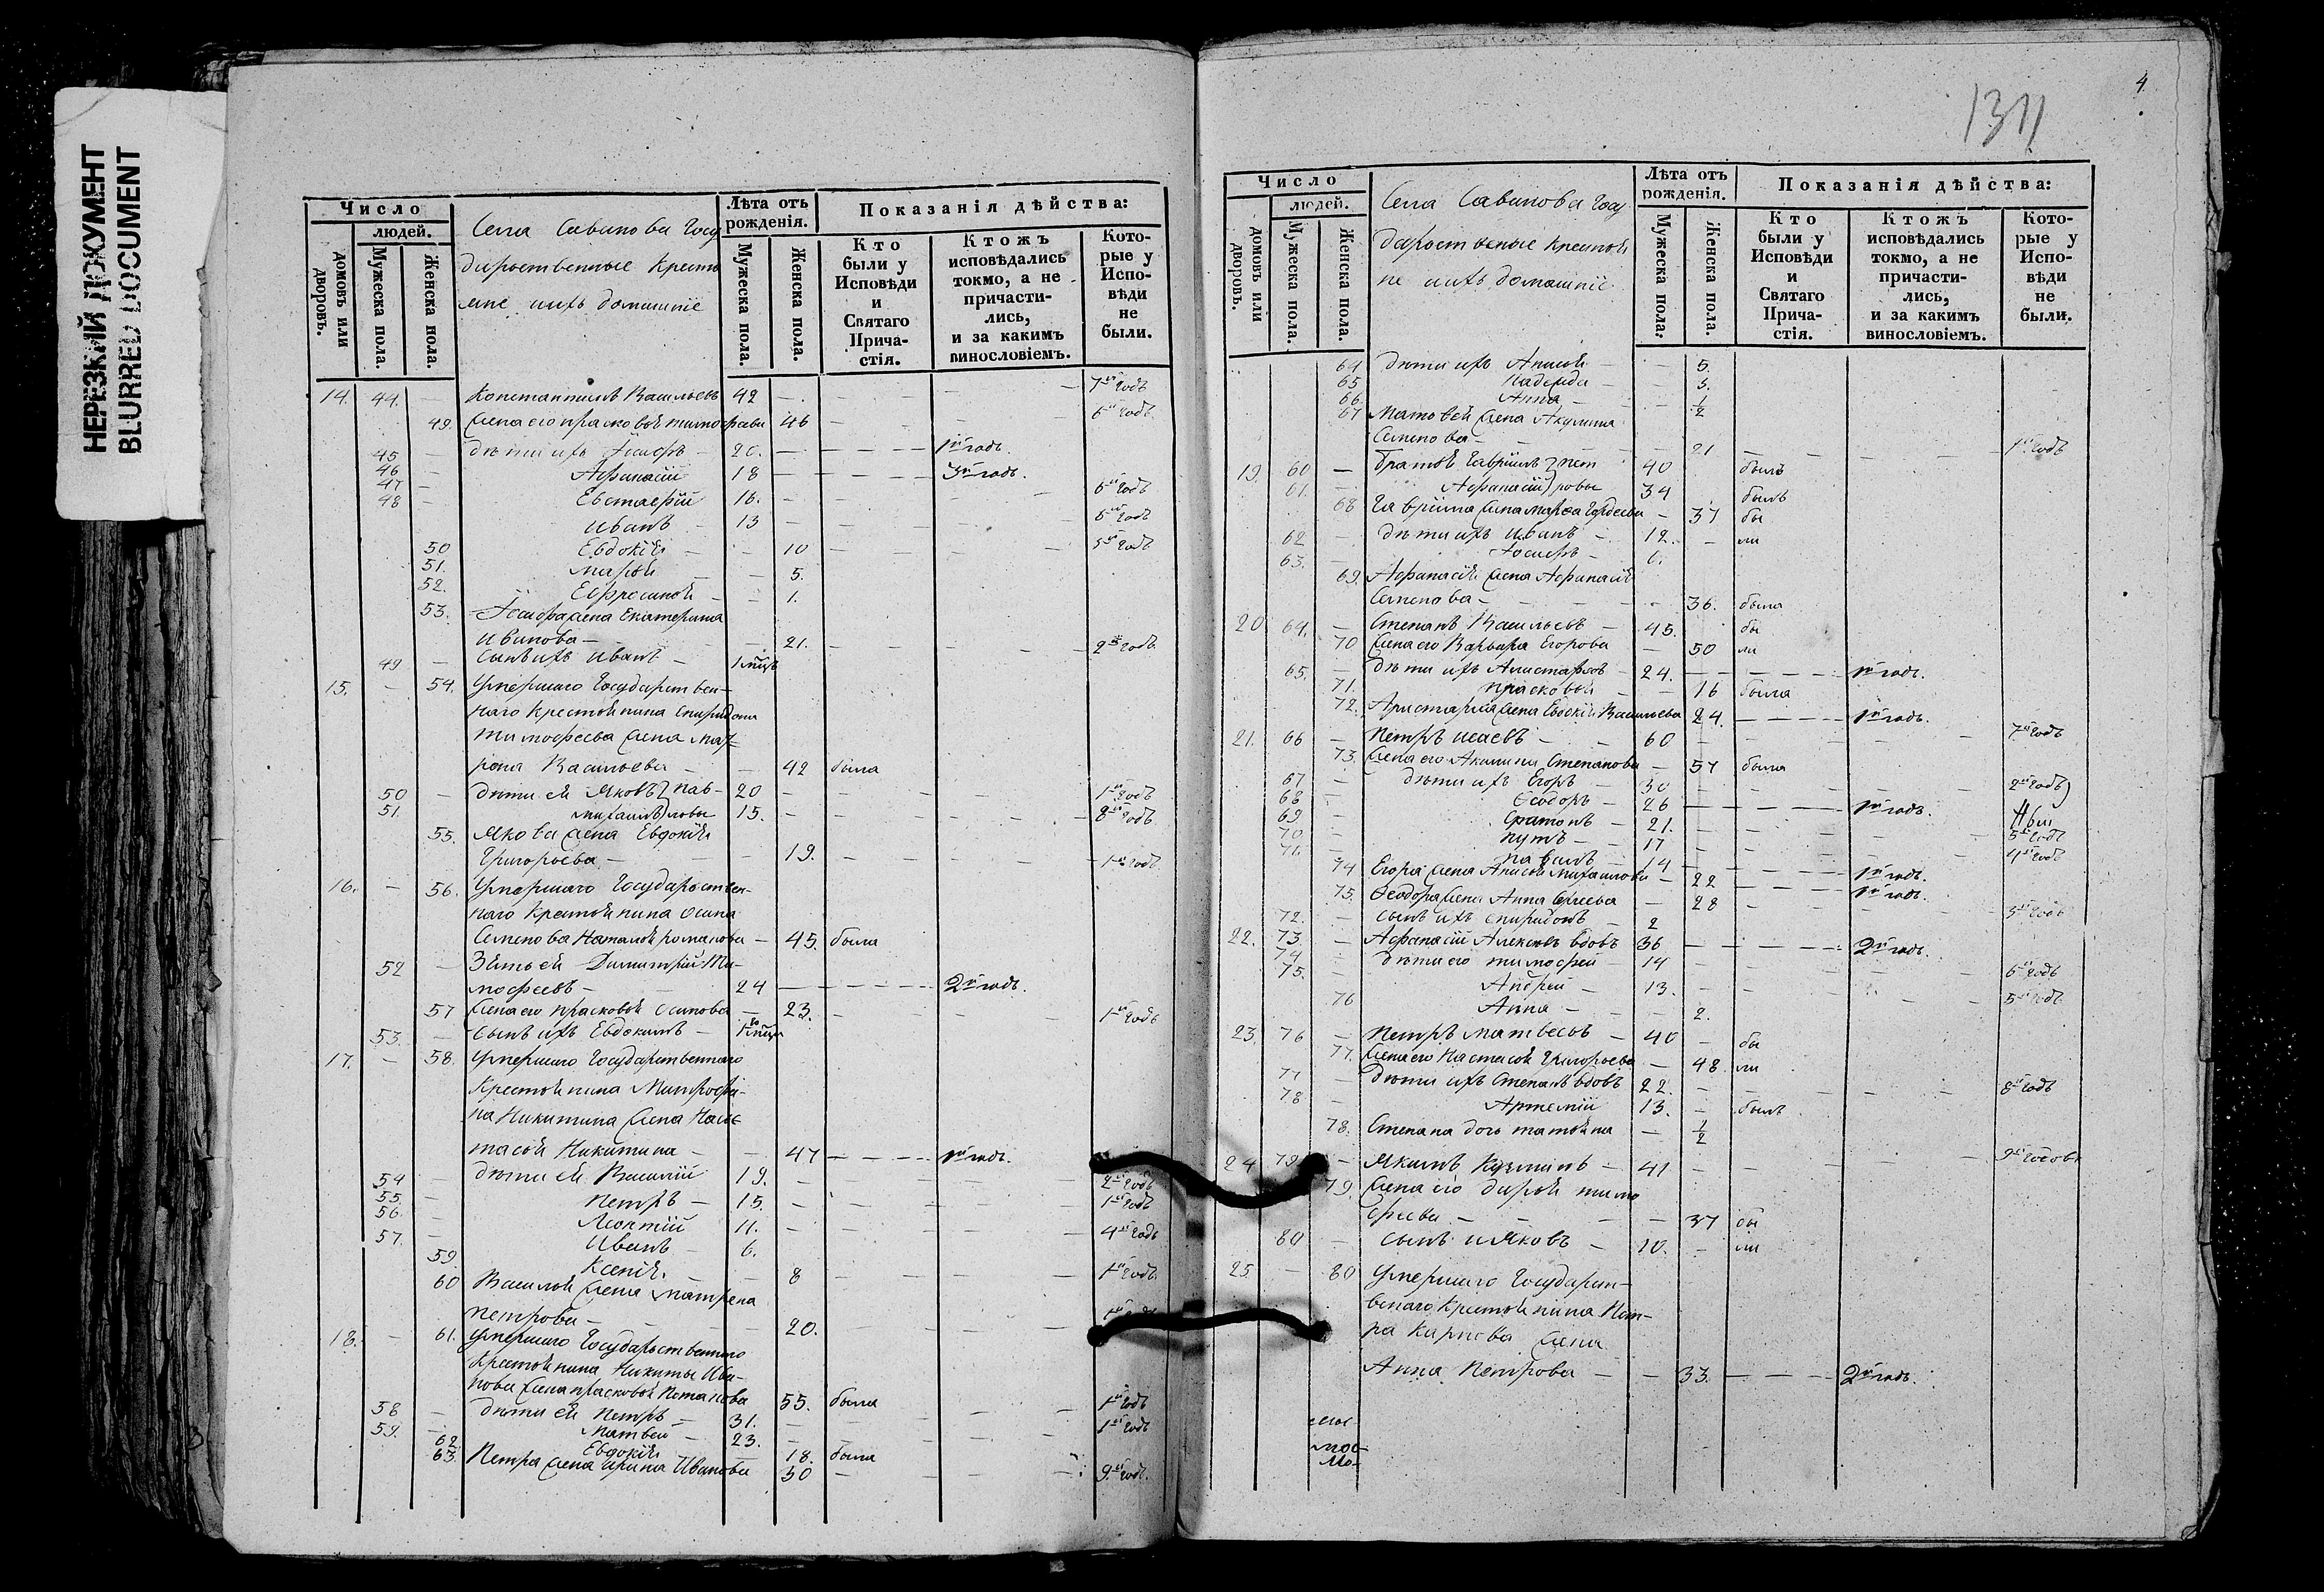 НЕРЕЗКИЙ ДОКУМЕНТ
BLURRED DOCUMENT
Число
людей.
домовъ или дворовъ.
Мужеска пола.
Женска пола.
Села Савинова Госу
дарственные Кресть
яне ихъ домашніе
Лѣта отъ рожденія.
Мужеска пола.
Женска пола.
Показанія дѣйства:
Кто были у Исповѣди и Святаго Прича-стія.
Ктожъ исповѣдались токмо, а не причасти-лись, и за какимъ винословіемъ.
Кото-рые у Испо-вѣди не были.
14. 44. Константинъ Васильевъ 42 — 7й годъ
49. Жена его Прасковья Тимофеева 46 — 6й годъ
45 — дѣти ихъ Іосифъ — 20. — 1й годъ
46 — Афанасій 18 — 3й годъ.
47 — Евстафій 16. — 6й годъ
48 — Иванъ 13 — 6й годъ
50 Евдокія — 10 — 5й годъ
51. Марья — 5.
52. Ефросинья — 1.
53. Іосифа жена Екатерина
Иванова — 21. — 2й годъ
49 — Сынъ ихъ Иванъ — 1 мѣць
15. — 54. Умершаго Государствен-
наго Крестьянина Спиридона
Тимофеева жена Мат-
рона Васильева — 42 была
50 — дѣти ея Яковъ Пав- 20 — 1й годъ
51. Михаилъ ловы 15. — 8й годъ
55. Якова жена Евдокія
Григорьева — 19. — 1й годъ
16. — 56. Умершаго Государствен-
наго Крестьянина Осипа
Семенова Наталья Романова — 45. была
52 — Зять ея Димитрій Ти-
мофеевъ — 24 — 2й годъ.
57 Жена его Прасковья Осипова — 23. — 1й годъ
53. — Сынъ ихъ Евдокимъ — 1 мѣца
17. — 58. Умершаго Государственнаго
Крестьянина Митрофа-
на Никитина жена Нас-
тасья Никитина — 47 — 1й годъ.
54 — дѣти ея Василій 19. — 2й годъ
55. — Петръ — 15. — 1й годъ
56. Леонтій 11. — 4й годъ
57. — Иванъ — 6.
59. Ксенія. — 8 — 1й годъ
60 Василья жена Матрена
Петрова — 20. —
18. — 61. Умершаго Государственнаго
Крестьянина Никиты Ива-
нова жена Прасковья Потапова 55. была
58 дѣти ея Петръ — 31. — 1й годъ
59. — Матвей — 23. — 1й годъ
62 Евдокія — 18. была
63. Петра жена Арина Иванова 30 — 9й годъ.
4
1311
Число
людей.
домовъ или дворовъ.
Мужеска пола.
Женска пола.
Села Савинова Госу
дарственые Крестья
не ихъ домашніе
Лѣта отъ рожденія.
Мужеска пола.
Женска пола.
Показанія дѣйства:
Кто были у Исповѣди и Святаго Прича-стія.
Ктожъ исповѣдались токмо, а не причасти-лись, и за какимъ винословіемъ.
Кото-рые у Испо-вѣди не были.
64 дѣти ихъ Анисья — 5.
65 Надежда — 3.
66 Анна — 1/2
67 Матвея жена Акулина
Семенова — 21 — 1й годъ
19. 60 — Братья Гавріилъ Пет 40 былъ
61. — Афанасій ровы 34 былъ
68 Гавріила жена Марѳа Гордеева — 37 бы
62 — дѣти ихъ Иванъ — 12. — ли
63. — Іосифъ — 6.
69. Афанасія жена Афанасія
Семенова — 36. была
20 64. — Степанъ Васильевъ — 45. бы
70 Жена его Варвара Егорова — 50 ли
65. — дѣти ихъ Алистархъ — 24. — 1й годъ.
71. Прасковья — 16 была
72. Аристарха жена Евдокія Васильева 24. — 1й годъ.
21. 66 — Петръ Исаевъ — 60 — 7й годъ
73. Жена его Акилина Степанова — 57 была
67 — дѣти ихъ Егоръ — 30 — 2й годъ
68 — Ѳеодоръ — 26 — 1й годъ.
69 — 21. —
70 — 17 — 5й годъ
71. — 14 — 4й годъ
74 Егора жена Анисья Михайлова — 22 — 1й годъ.
75. Ѳеодора жена Анна Сергеева — 28 — 1й годъ.
72. — Сынъ ихъ Спиридонъ — 2 3й годъ
22. 73. — Афанасій Алексеевъ вдовъ 36 — 2й годъ.
74 — дѣти его Тимофей — 14 — 6й годъ
75. — Андрей — 13. — 5й годъ
76 Анна — 2.
23. 76 — Петръ Матвеевъ — 40 — бы
77. Жена его Настасья Григорьева — 48 ли
77 — дѣти ихъ Степанъ вдовъ 22. — 8й годъ
78 — Артемій 13. — былъ
78. Степана дочь Татьяна — 1/2
24 79 — Якимъ Кузминъ — 41 — 9й годовъ
79. Жена его Дарья Тимо
феева — 37 бы
80 — Сынъ и Яковъ — 10. — ли
25 — 80 Умершаго Государст-
веннаго Крестьянина Пет-
ра Карпова жена
Анна Петрова — 33. — 2й годъ.